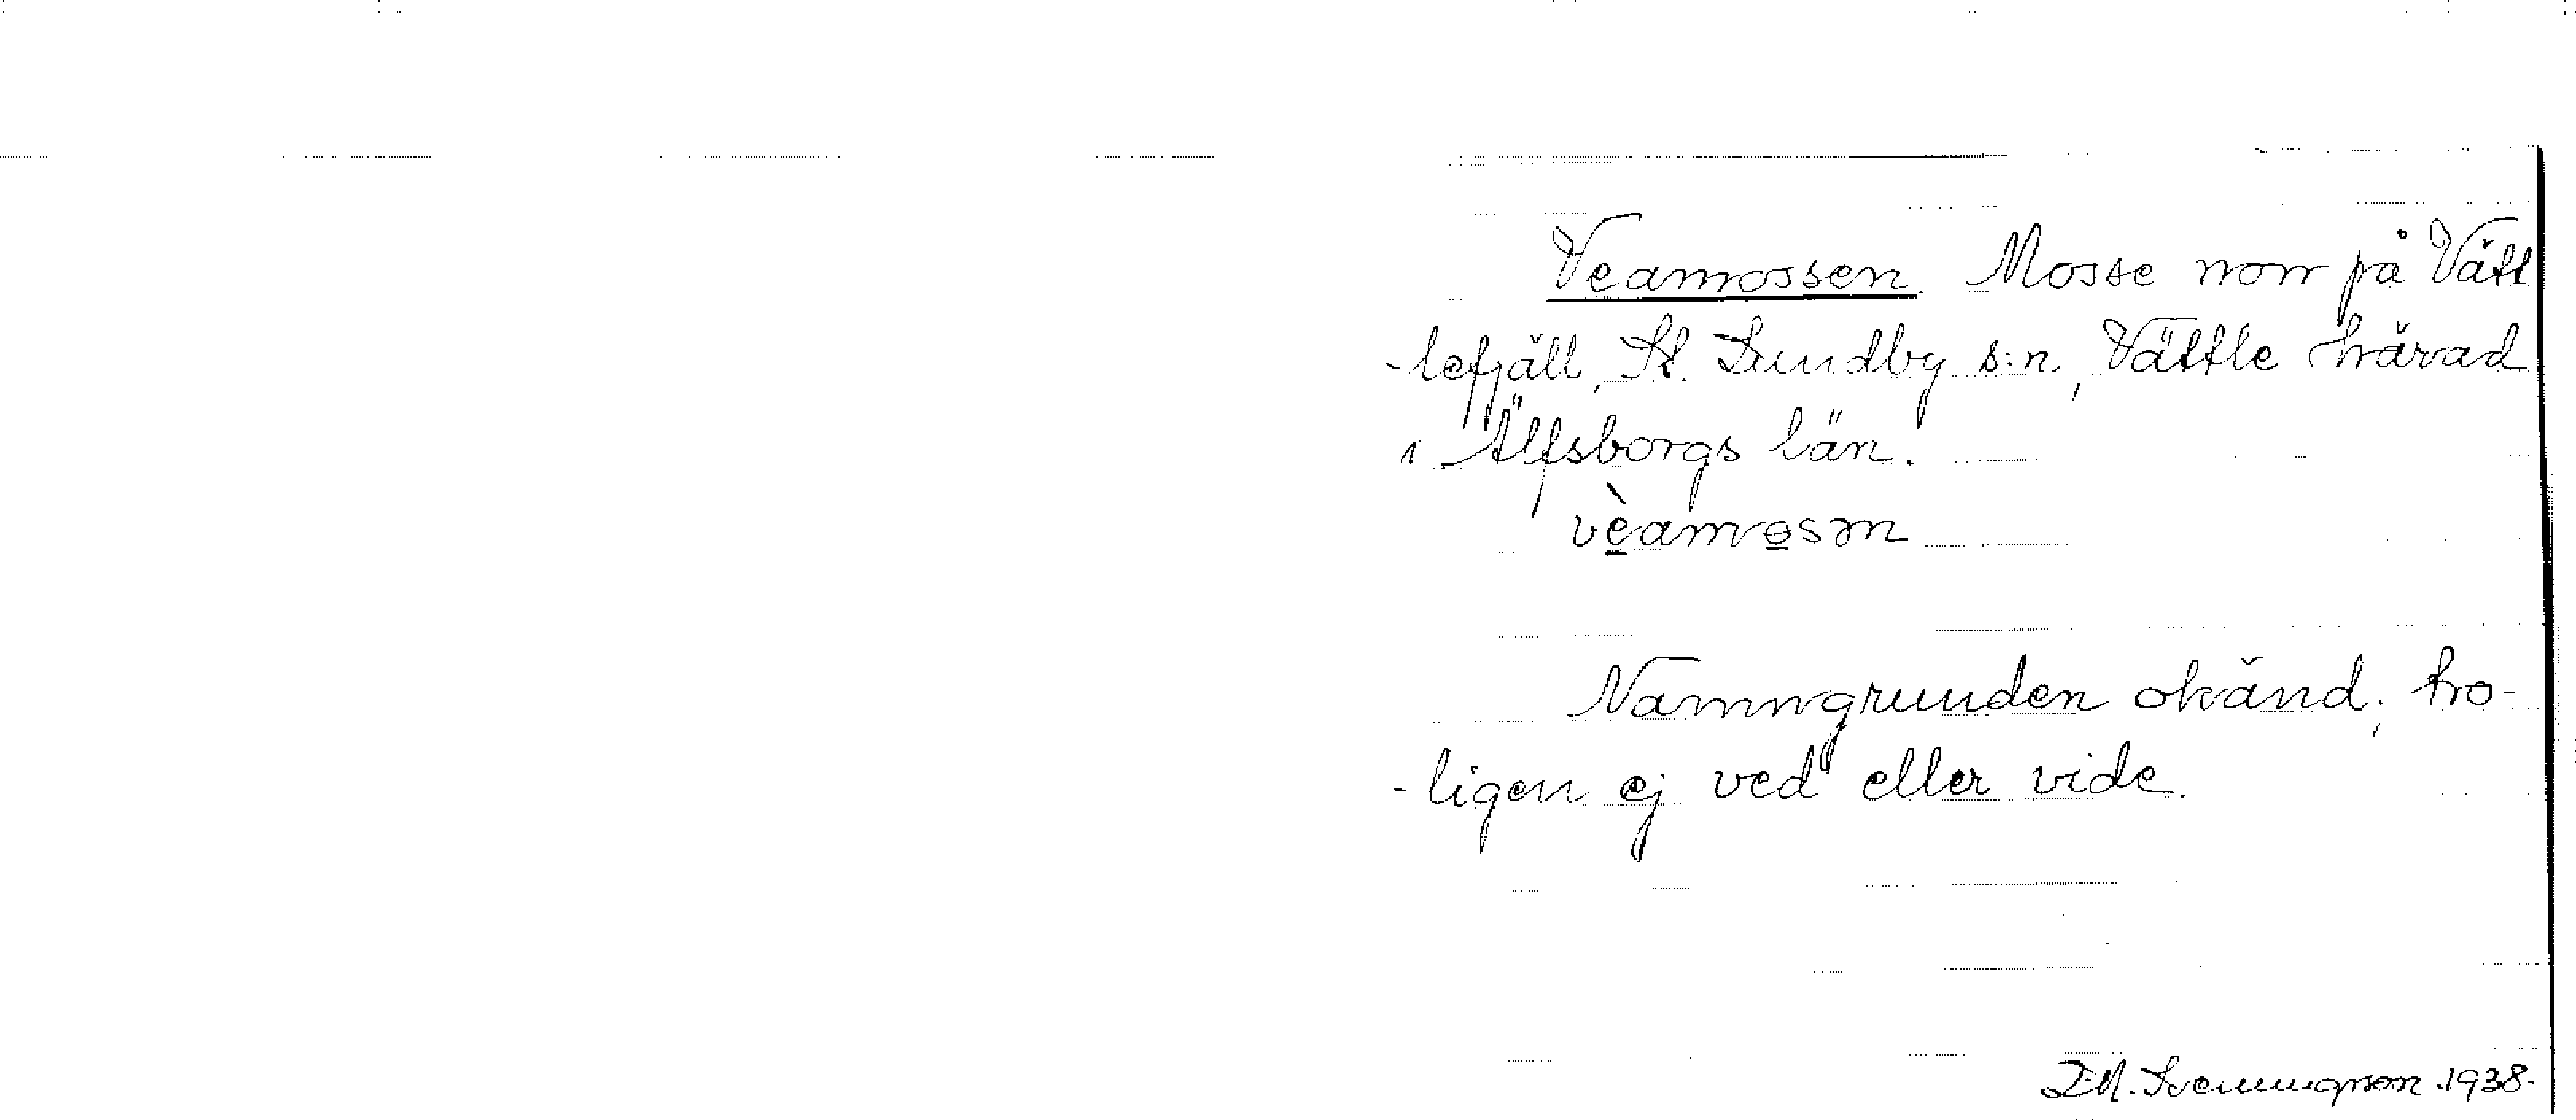 Veamossen. Mosse norr på Vätt
-lefjäll, St. Lundby s:n, Vättle härad
i Älfsborgs län.
vèamosən
Namngrunden okänd; tro-
-ligen ej ved eller vide.
D.A. Svenningson 1938.